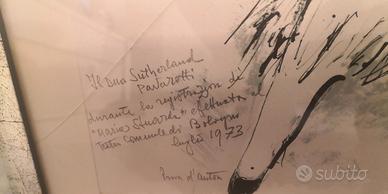 Il Duo Sutherland
Pavarotti
durante la registrazion de
"Maria Stuarda" effettuata al
Teatro Comunale di Bologna
luglio 1973
d'Anton
subito